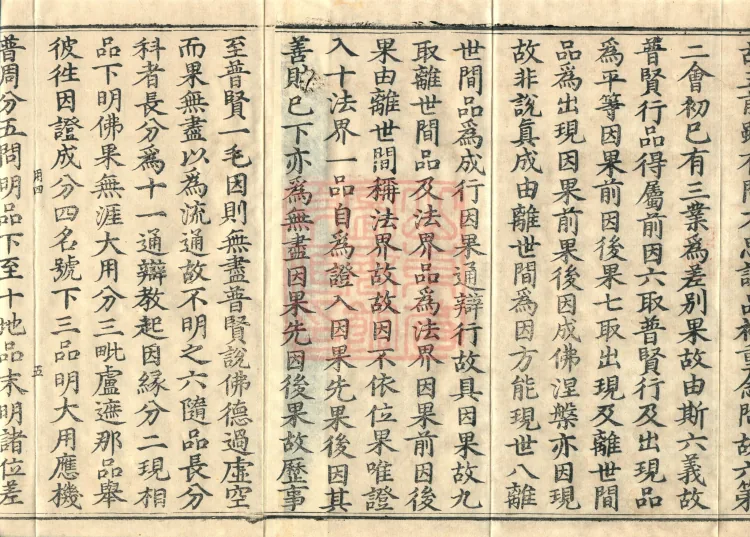 二會初巳有三業為差別果故由斯六義故
普賢行品得屬前因六取普賢行及出現品
為平等因果前因後果七取出現及離世間
品為出現因果前果後因成佛涅槃亦因現
故非說真成由離世間為因方能現世八離
世間品為成行因果通辯行故具因果故九
取離世間品及法界品為法界因果前因後
果由離世間稱法界故故因不依位果唯證
入十法界一品自為證入因果先果後因其
善財巳下亦為無盡因果先因後果故歷事
至普賢一毛因則無盡普賢說佛德過虛空
而果無盡以為流通故不明之六隨品長分
科者長分為十一通辯教起因緣分二現相
品下明佛果無涯大用分三毗盧遮那品舉
彼徃因證成分四名號下三品明大用應機
用四
五
普周分五問明品下至十地品末明諸位差